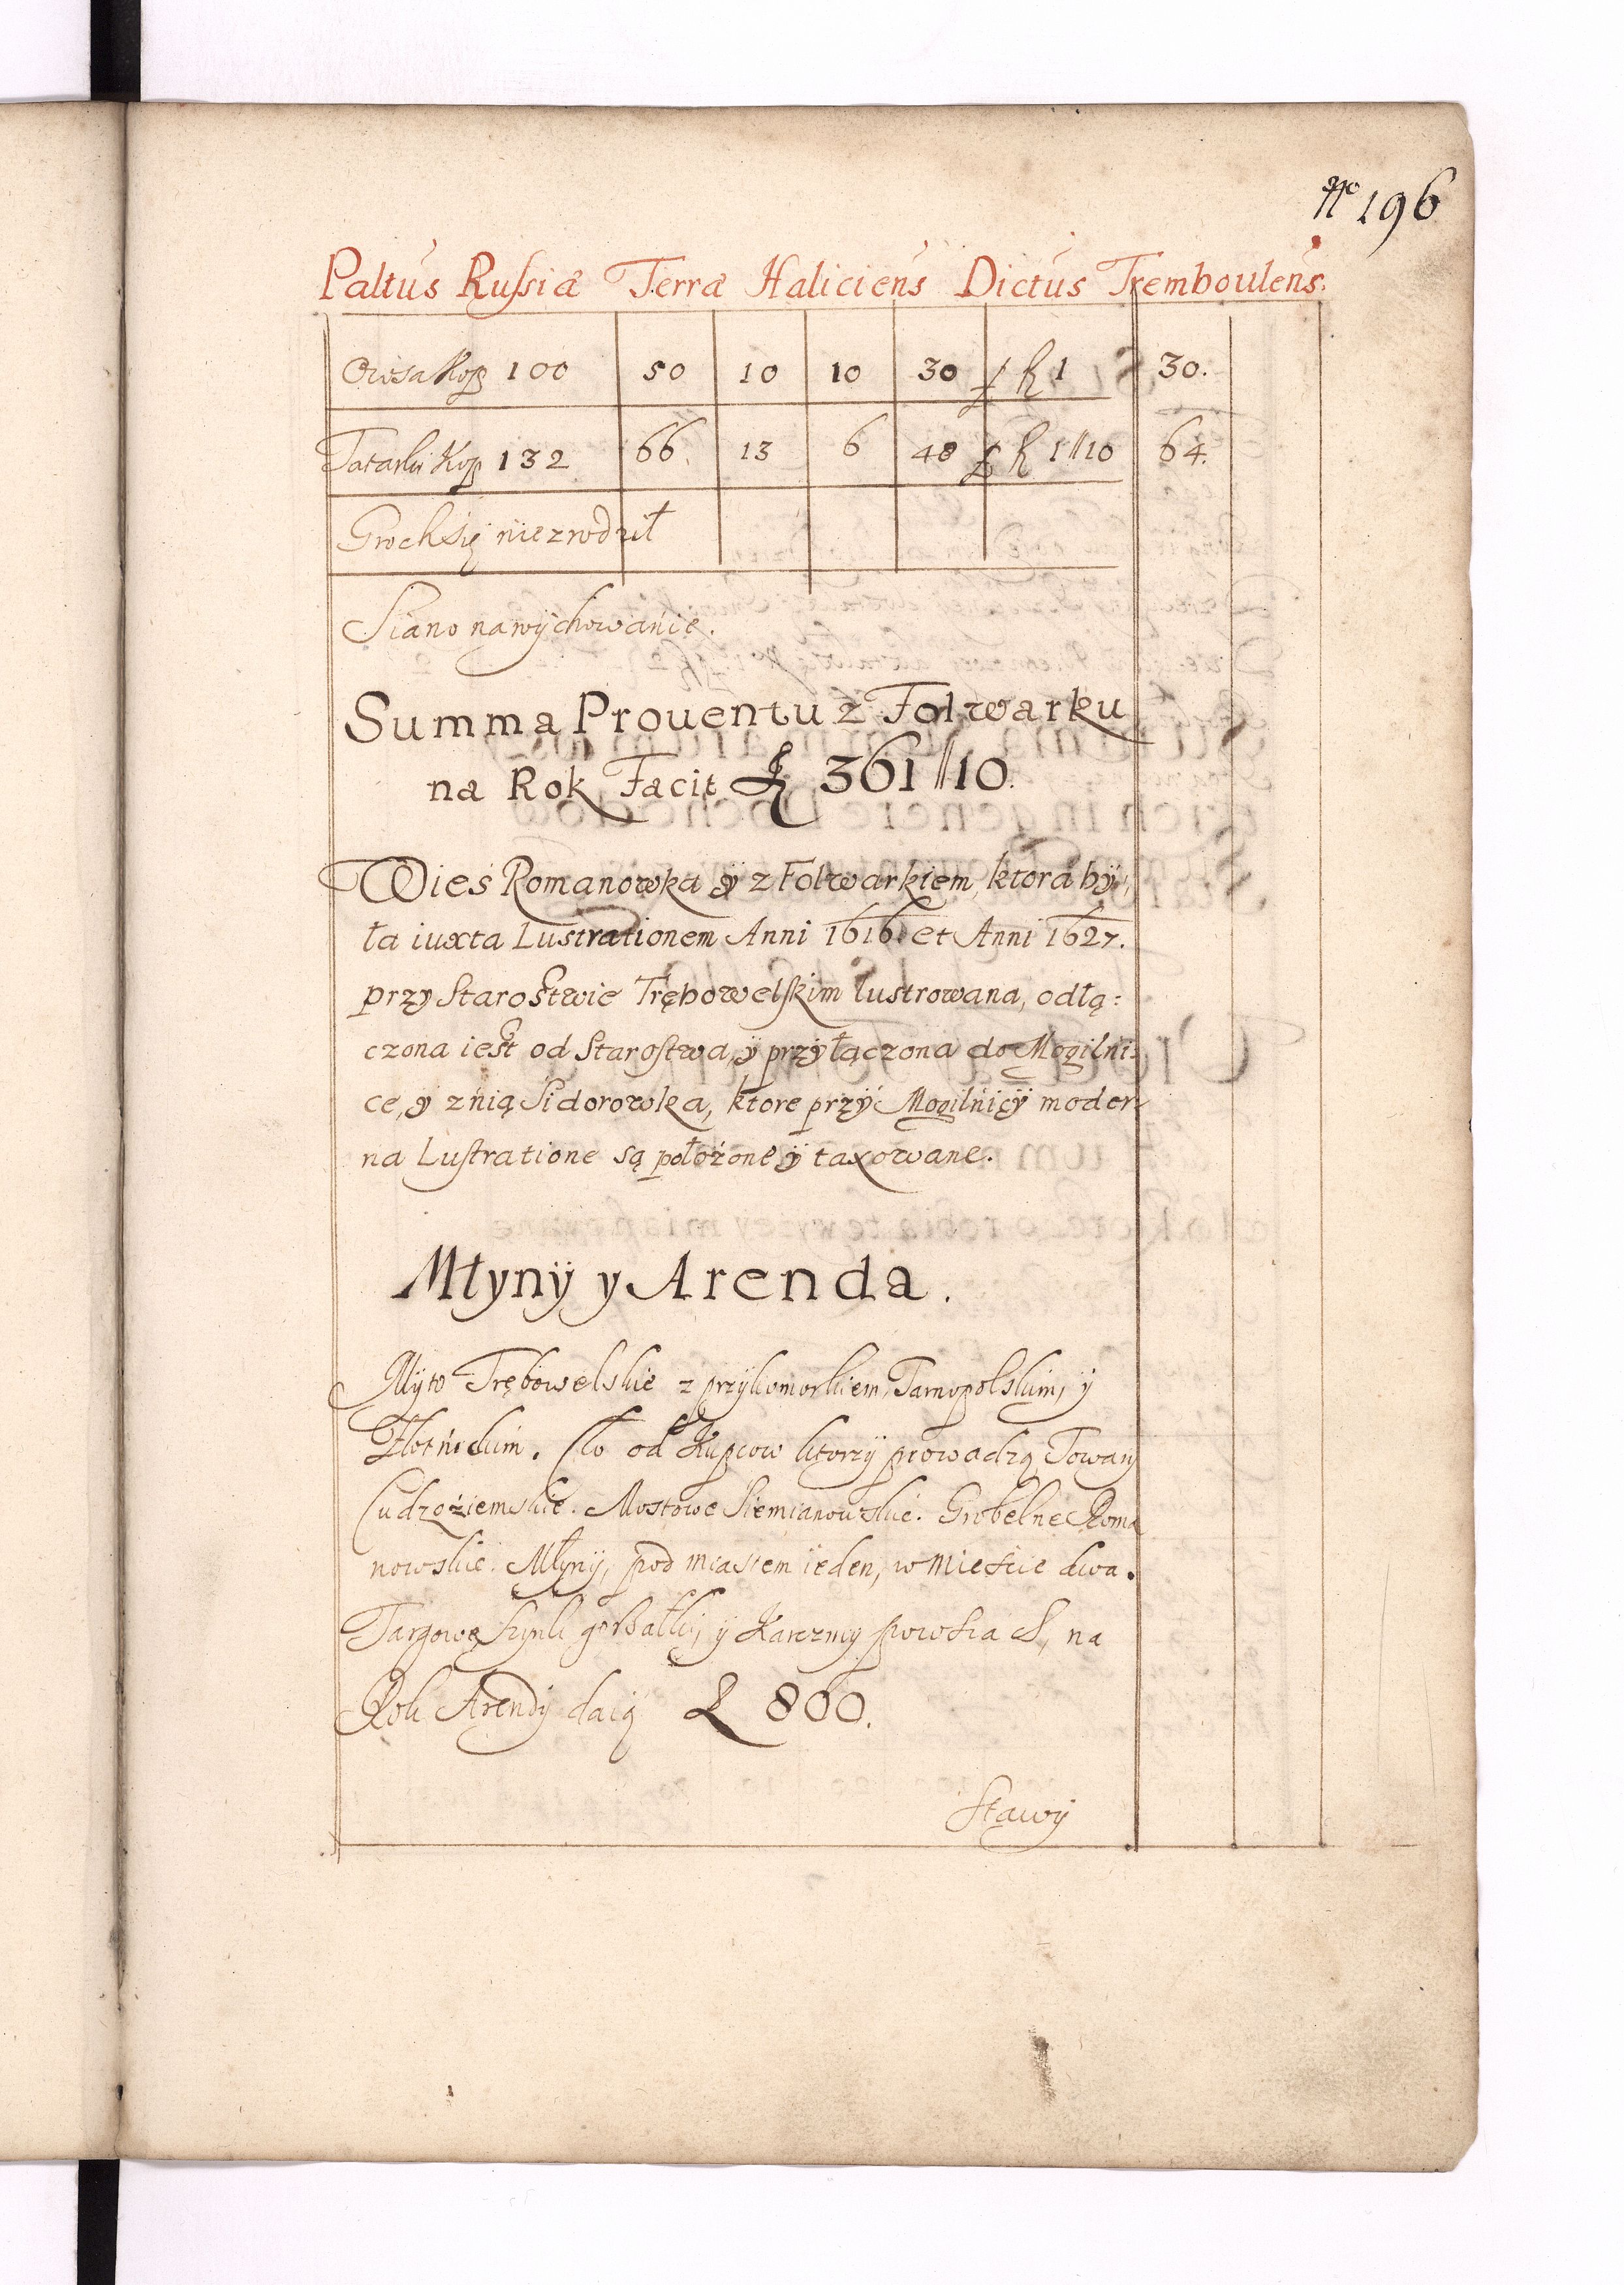 No 196
Paltus Russiæ Terræ Haliciens Dictus Tremboulens.
Owsa Kop 100 50 10 10 30 f R 1 30.
Tatarki Kop 132 66. 13 6 48 f R 1 // 10 64.
Groch się nie zrodził
Siano na wÿchowanie.
Summa Prouentu z Folwarku
na Rok Facit 361 // 10.
Wieś Romanowka ÿ z Folwarkiem, ktora bÿ,
ła iuxta Lustrationem Anni 1616. et Anni 1627.
przy Starostwie Trębowelskim lustrowana, odłą:
czona iest od Starostwa, ÿ przÿłączona do Mogilni:
ce, ÿ z nią Sidorowka, ktore przÿ Mogilnicÿ moder,
na Lustratione są położone ÿ taxowane.
Młynÿ y Arenda.
Mÿto Trębowelskie z przÿkomorkiem, Tarnopolskim, ÿ
Złotnickim. Cło od Kupcow ktorzÿ prowadzą Towarÿ
Cudzoziemskie. Mostowe Siemianowskie. Grobelne Roma
nowskie. Młynÿ, pod miastem ieden, w Mieście dwa.
Targowe, Szynk gorzałki, ÿ Karczmy po wsiach, na
Rok Arendÿ daią 800.
Stawÿ